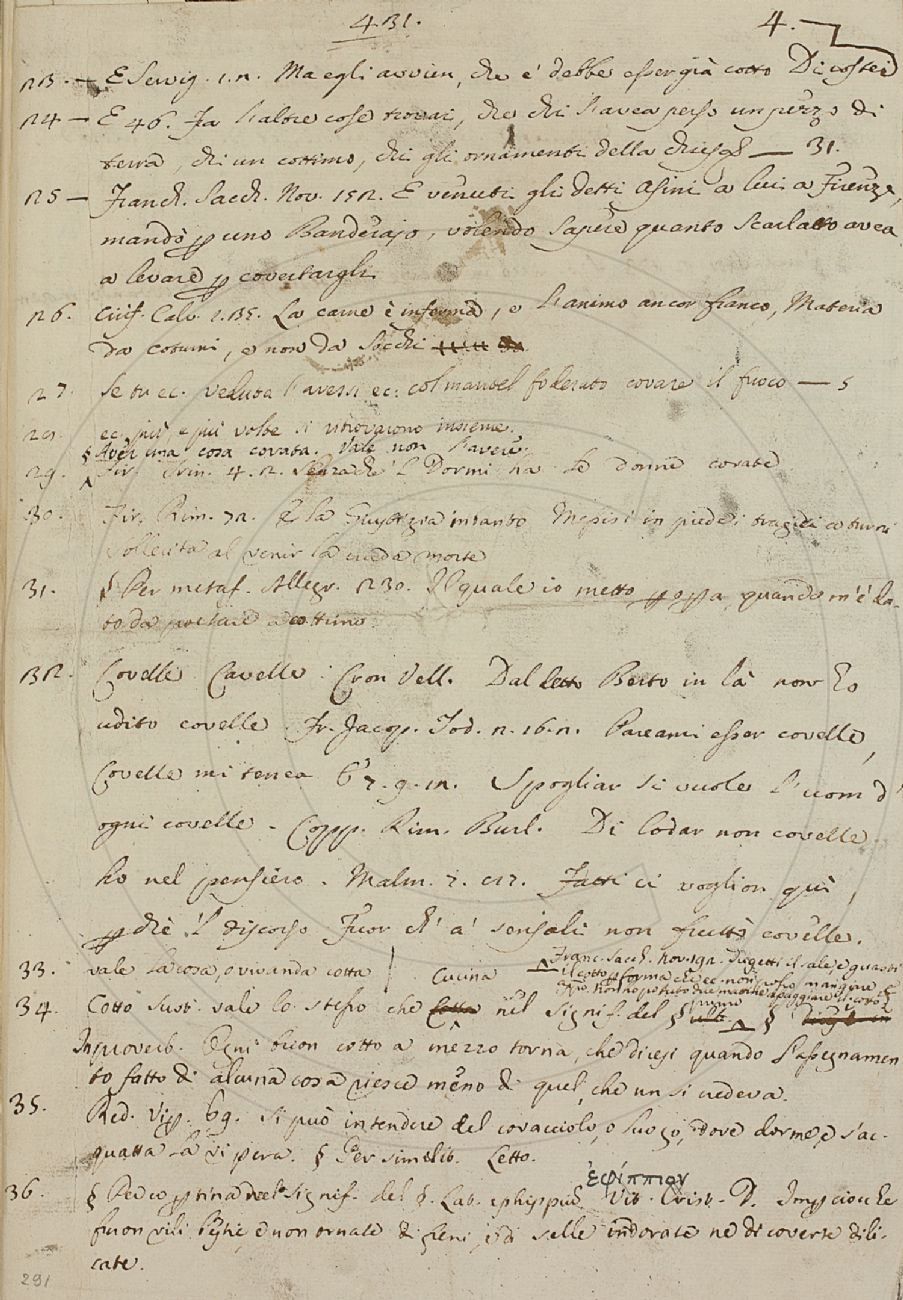 431. 4.
23. — E Servig. 1. n. Ma egli avvien, che e' debbe esser già cotto Di costei
24 — E 46. Fra l'altre cose trovai, che chi l'avea perso un pezzo di
terra, chi un cottimo, chi gli ornamenti della — 31.
25 — Franch. Sacch. Nov. 152. E venuti gli detti Asini a lui a Firenze,
mandò p uno Banderajo, volendo sapere quanto Scarlatto avea
a levare p covertargli
26. Ciriff. Calv. 2. 135. La carne è inferma, e l'animo ancor franco, Materia
da coturni, e non da Socchi
27. Se tu ec. veduta l'avessi ec. col mantel foderato covare il fuoco — 5
ec. più, e più volte si ritrovarono insieme.
§ Aver una cosa covata. Vale non l'avere
29. Fir. Trin. 4. 2. Senzachè 'l Dormi ha le donne covate
30. Fir. Rim. 72. E la intanto in piede i tragici coturni
Sollecita al venir la cruda morte
31. § Per metaf. Allegr. 230. Il quale io metto p opra, quando m'è da-
to da portare a cottimo.
132. Covelle Cavelle. Cron Vell. Dal letto Berto in là non ho
udito covelle. Fr. Jacop. Tod. 2. 16. 2. Pareami esser covelle,
Covelle mi tenea 6. 7. 9. 12. Spogliar si vuole l'uom d'
ogni covelle. Copp. Rim. Burl. Di lodar non covelle
ho nel pensiero. Malm. 7. Fatti ci voglion quì,
p che 'l discorso Fuor ch' a' sensali non frutta covelle.
33. vale la cosa, o vivanda cotta | Cucina
Franc. Sacch. Nov. Dugetti il ale, e quasti
il cotto p forma che ec. non mangiare
34. Cotto Sust. vale lo stesso che Cotta nel signif. del § ult. §
In proverb. Ogni buon cotto a mezzo torna, che dicesi quando l'assegnamen
to fatto di alcuna cosa riesce meno di quel, che un si credeva.
35. Red. Vip. 69. Si può intendere del covacciolo, o luogo, dove dorme, e s'ac-
quatta la vipera. § Per similit. Letto.
ἐφίππιον
36. § Per copertina nel signif. del §. Lat. ephippium Vit. Crist. D. Impciocche
furon vili bestie, e non ornate di freni, e di selle indorate ne di coverte dili-
cate.
291